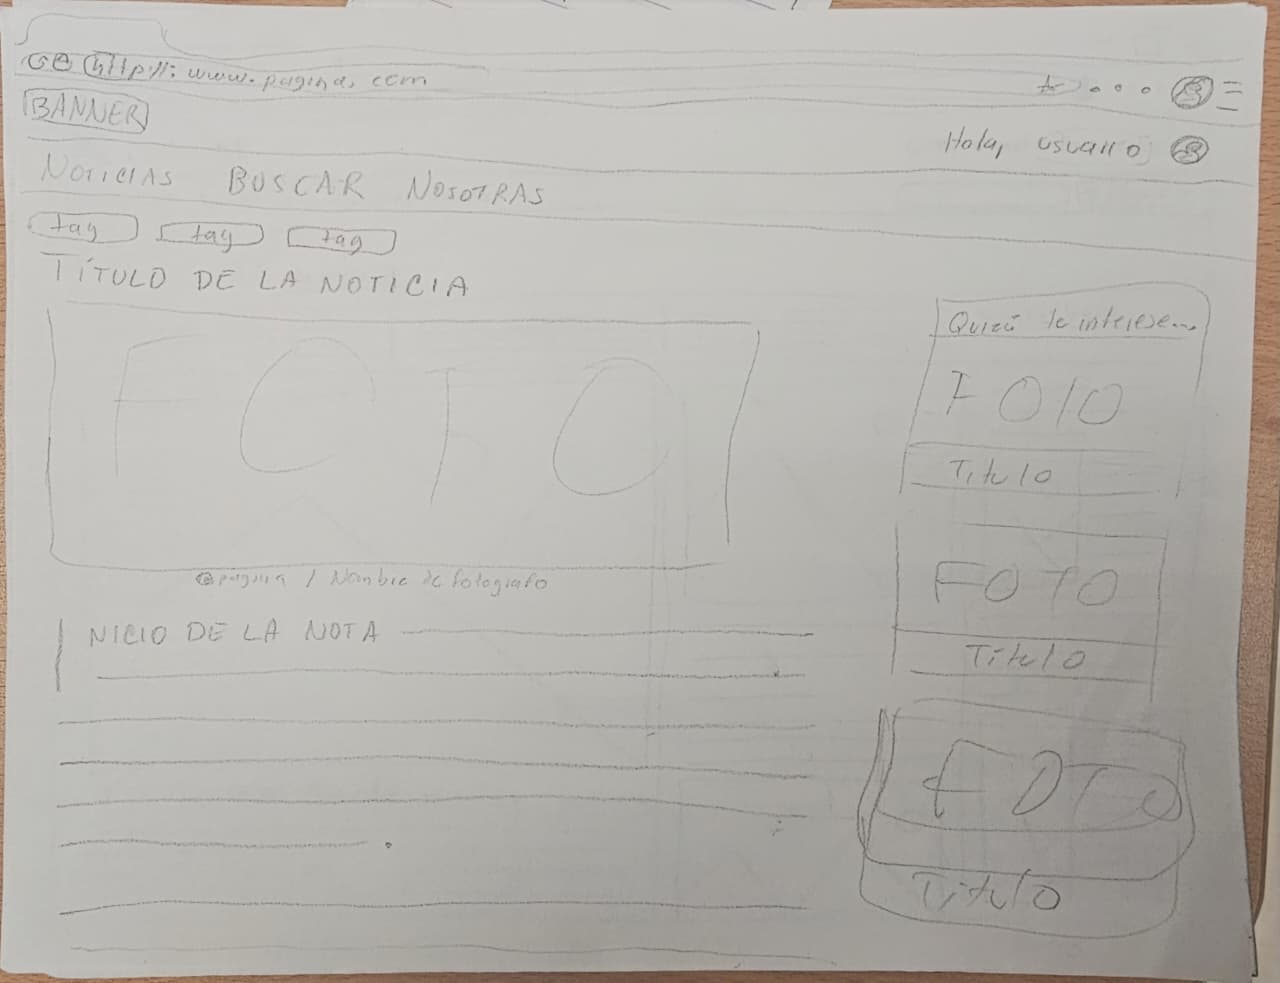 http://: www.pagina.com
BANNER
Hola, usuario
NOTICIAS BUSCAR NOSOTRAS
tag tag tag
TÍTULO DE LA NOTICIA
FOTO
@pagina / Nombre de fotografo
INICIO DE LA NOTA
Quizá le interese...
FOTO
Titulo
FOTO
Titulo
FOTO
Titulo